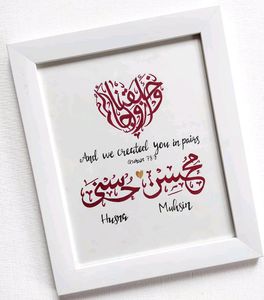 وخلقناكم أزواجا
And we created you in pairs
Quran 78:8
محسن حسنى
Husna Muhsin